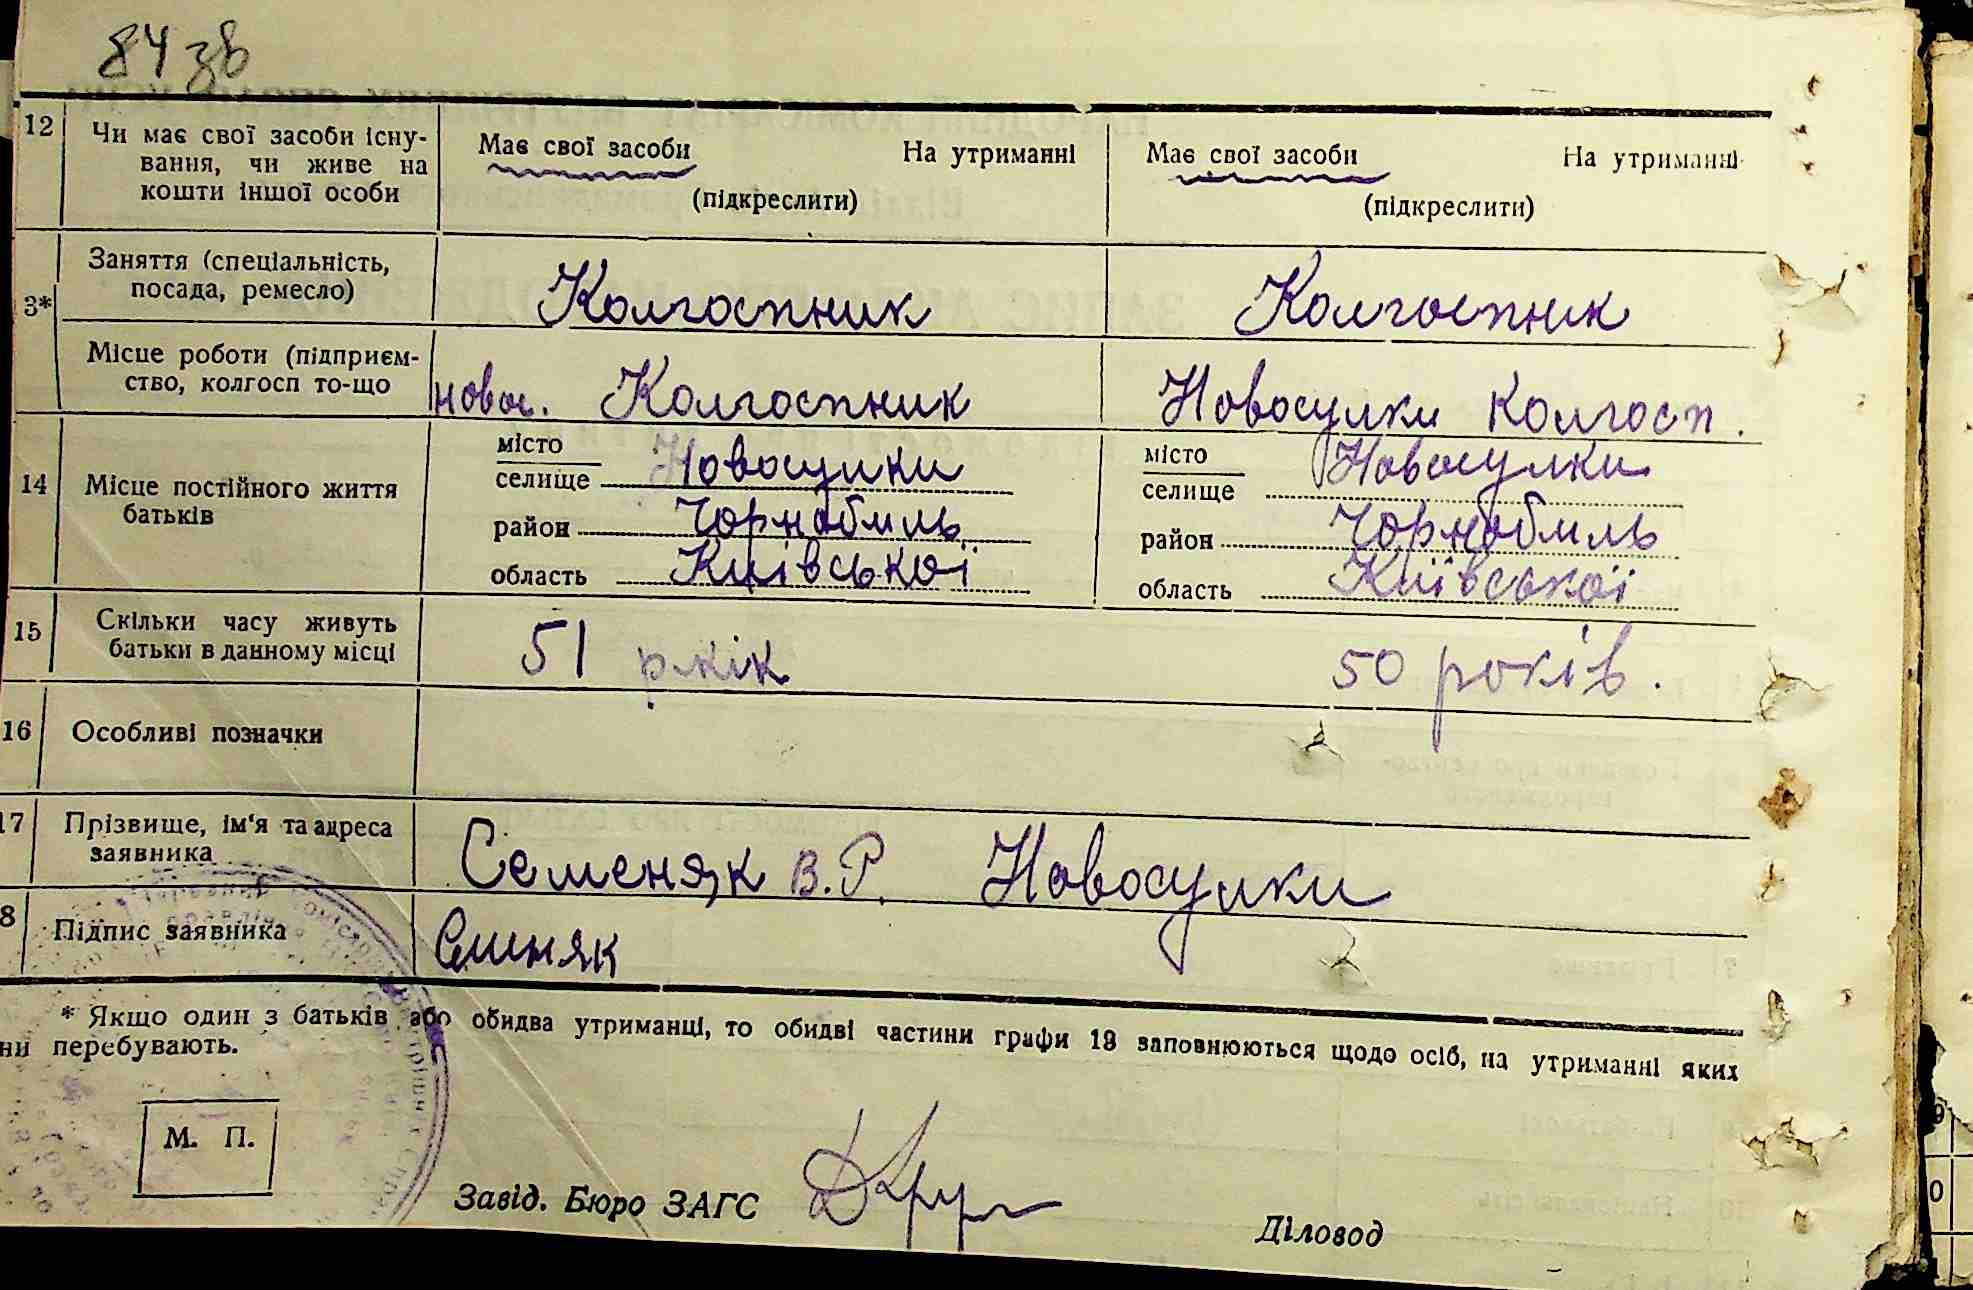 84 зв
12 Чи має свої засоби існу-
вання, чи живе на
кошти іншої особи
Має свої засоби На утриманні
(підкреслити)
Має свої засоби На утриманні
(підкреслити)
3* Заняття (спеціальність,
посада, ремесло)
Колгоспник
Колгоспник
Місце роботи (підприєм-
ство, колгосп то-що
новос. Колгоспник
Новосулки Колгосп.
14 Місце постійного життя
батьків
місто
селище Новосулки
район Чорнобиль
область Київської
місто
селище Новосулки
район Чорнобиль
область Київської
15 Скільки часу живуть
батьки в данному місці
51 ркік
50 років.
16 Особливі позначки
17 Прізвище, ім'я та адреса
заявника
Семеняк В.Р. Новосулки
8 Підпис заявника
Сминяк
* Якщо один з батьків або обидва утриманці, то обидві частини графи 13 заповнюються щодо осіб, на утриманні яких
ни перебувають.
М. П.
Завід. Бюро ЗАГС
Діловод